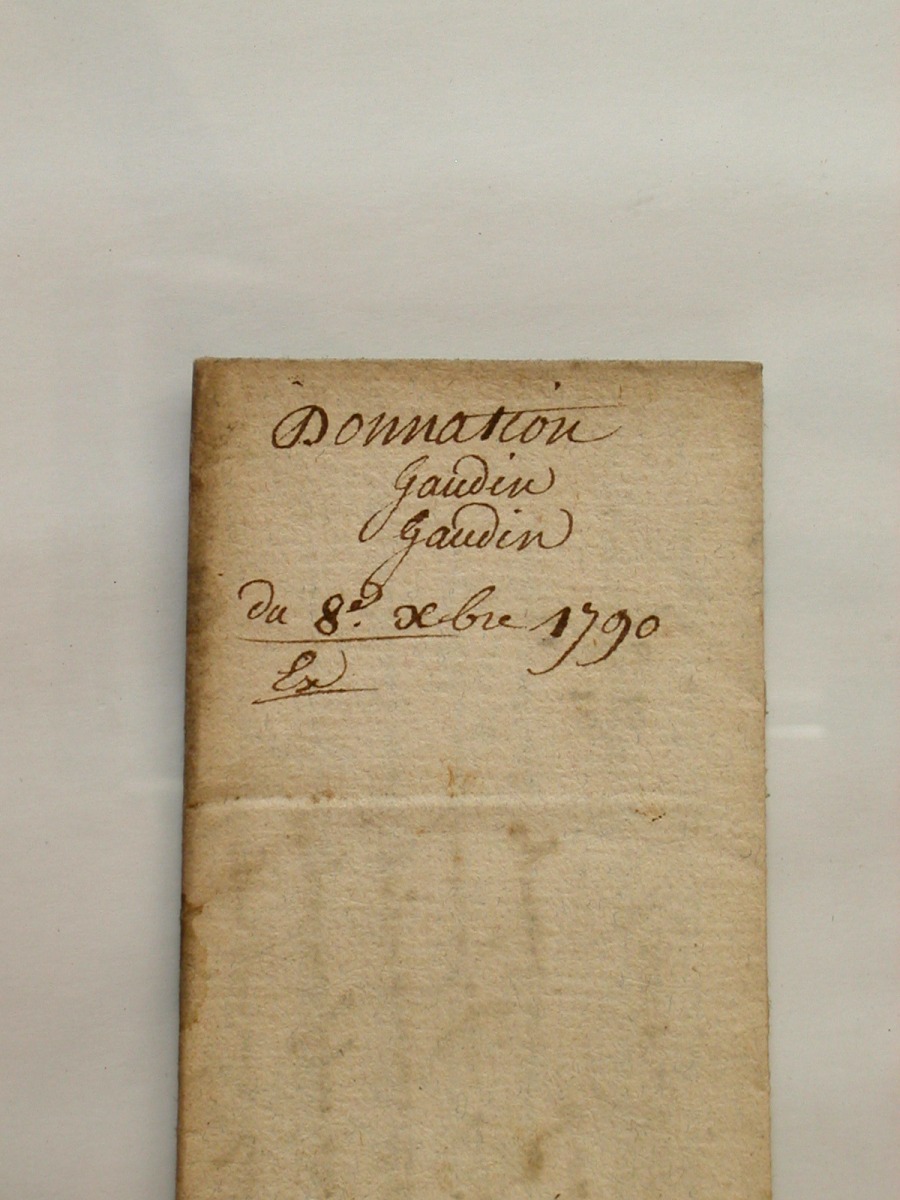 Donnation
Gaudin
Gaudin
du 8e. xbre 1790
Ex